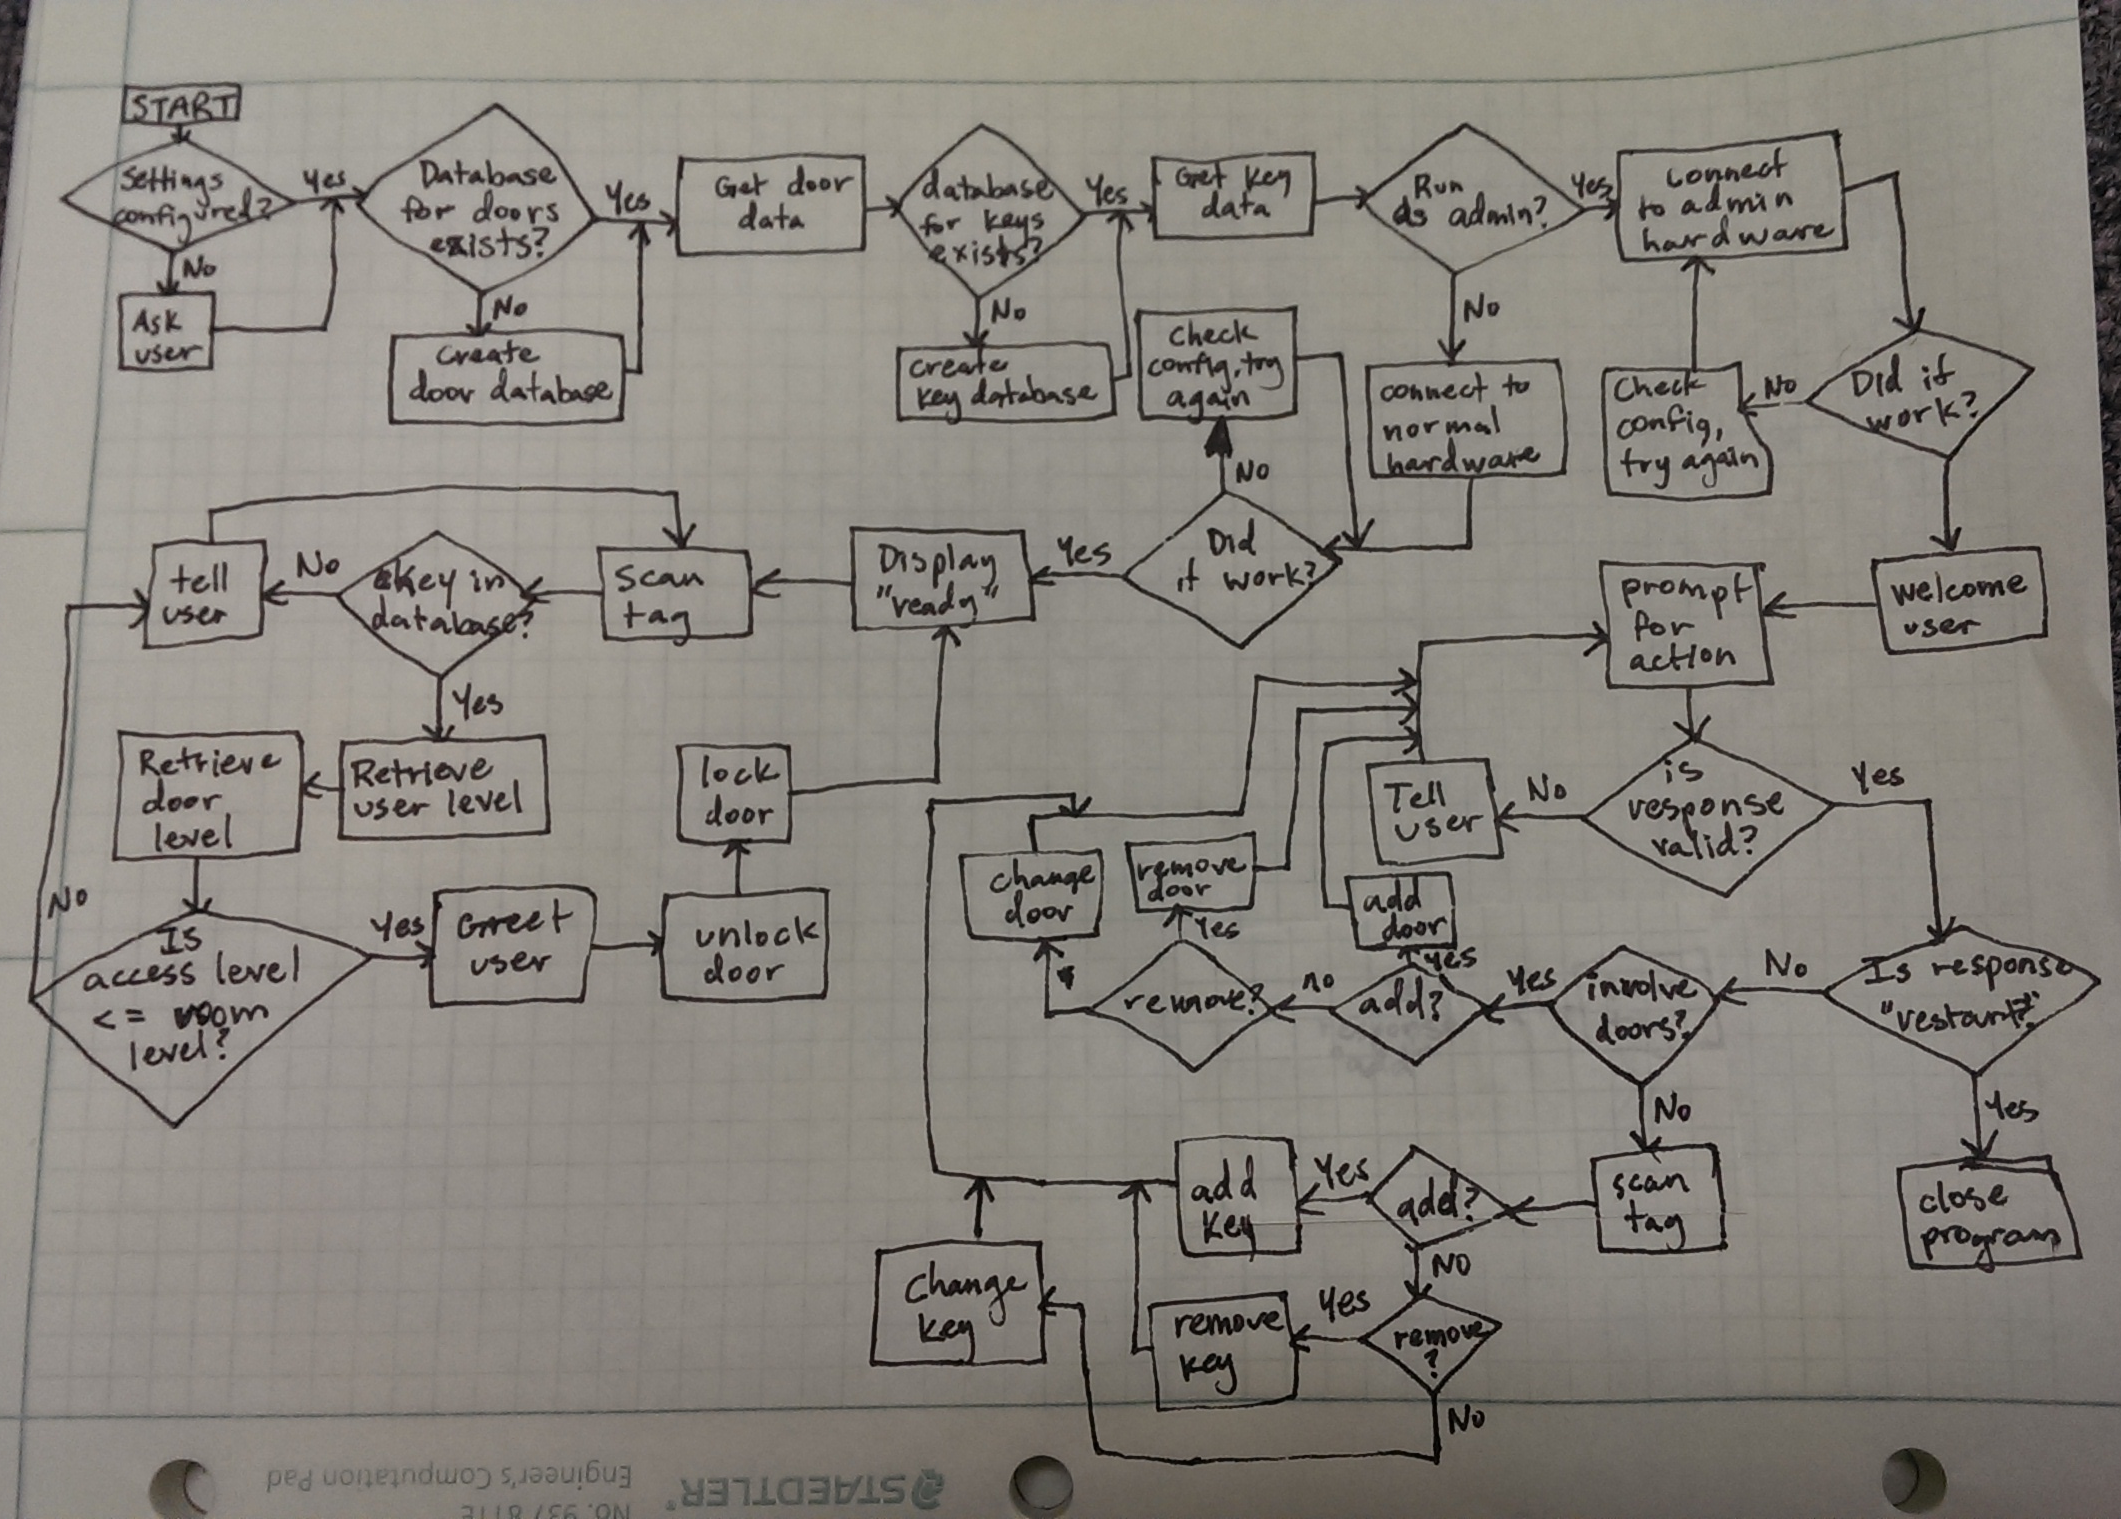 START
Settings
configured?
Yes
No
Ask
user
Database
for doors
exists?
Yes
No
Create
door database
Get door
data
database
for keys
exists?
Yes
No
create
key database
Get key
data
Run
as admin?
Yes
No
connect
to admin
hardware
Did it
work?
No
Check
config,
try again
connect to
normal
hardware
check
config, try
again
No
Did
it work?
Yes
Display
"ready"
scan
tag
key in
database?
No
tell
user
Yes
Retrieve
user level
Retrieve
door
level
No
Is
access level
<= room
level?
Yes
Greet
user
unlock
door
lock
door
welcome
user
prompt
for
action
is
response
valid?
No
Tell
user
Yes
Is response
"restart?"
No
Yes
close
program
involve
doors?
Yes
No
add?
yes
add
door
no
remove?
Yes
remove
door
change
door
scan
tag
add?
Yes
add
key
No
remove
?
Yes
remove
key
No
Change
key
STAEDTLER®
Engineer's Computation Pad
No. 937 811E